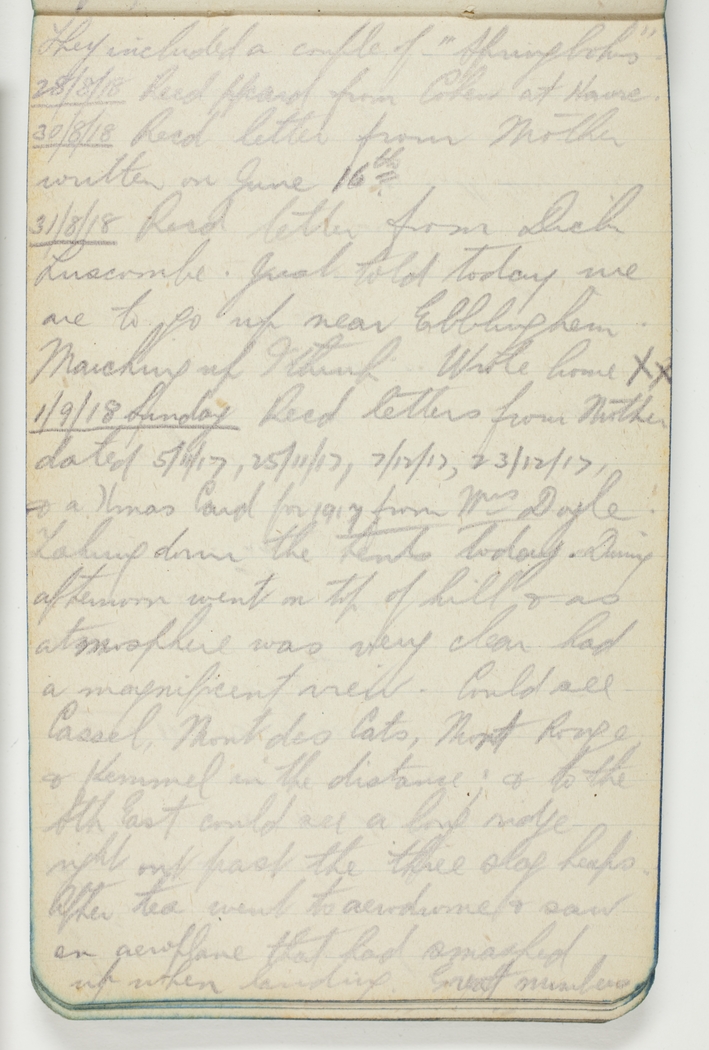 They included a couple of "Springboks".
28/8/18 Recd from Cohen at Havre.
30/8/18 Recd letter from Mother
written on June 16th
31/8/18 Recd letter from Dick
Luscombe. Just told today we
are to go up near Ebblinghem.
Marching up I think. Wrote home XX
1/9/18 Sunday Recd letters from Mother
dated 5/11/17, 25/11/17, 7/12/17, 23/12/17,
& a Xmas Card for 1917 from Mrs Doyle.
Taking down the tents today. During
afternoon went on top of hill & as
atmosphere was very clear had
a magnificent view. Could see
Cassel, Mont des Cats, Mont Rouge
& Kemmel in the distance; & to the
Sth East could see a long ridge
right out past the three slag heaps.
After tea went to aerodrome & saw
an aeroplane that had smashed
up when landing. Great numbers